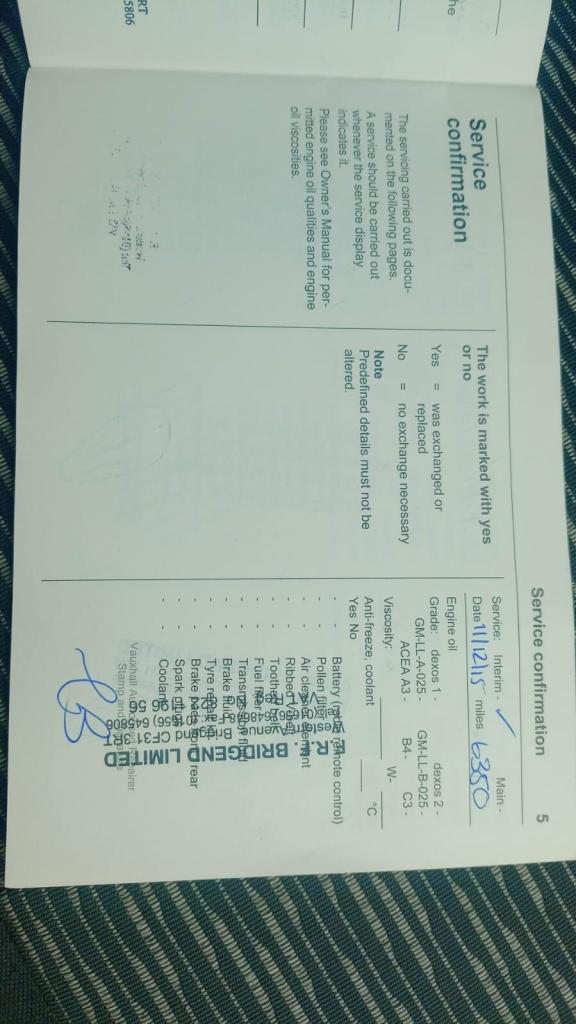 he
RT
5806
Service confirmation 5
Service
confirmation
The servicing carried out is docu-
mented on the following pages.
A service should be carried out
whenever the service display
indicates it.
Please see Owner's Manual for per-
mitted engine oil qualities and engine
oil viscosities.
The work is marked with yes
or no
Yes = was exchanged or
replaced
No = no exchange necessary
Note
Predefined details must not be
altered.
Service: Interim - ✓ Main -
Date 11/12/15 miles 6350
Engine oil
Grade: dexos 1 - dexos 2 -
GM-LL-A-025 - GM-LL-B-025 -
ACEA A3 - B4 - C3 -
Viscosity: W-
Anti-freeze, coolant °C
Yes No
- - Battery (remote control)
- - Pollen filter
- - Air cleaner element
- - Ribbed
- - Toothed belt
- - Fuel filter
- - Transmission fluid
- - Brake fluid
- - Tyre
- - Brake pads front rear
- - Spark plugs
- - Coolant
BRIDGEND LIMITED
CF31
Vauxhall Authorised Repairer
Stamp and